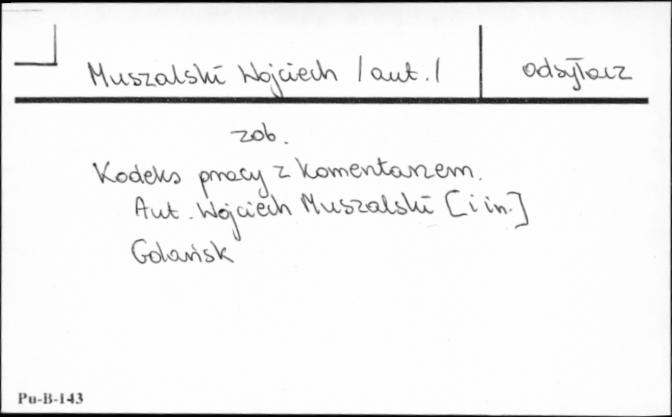 Muszalski Wojciech /aut./
odsyłacz
zob.
Kodeks pracy z komentarzem.
Aut. Wojciech Muszalski [i in.]
Gdańsk
Pu-B-143